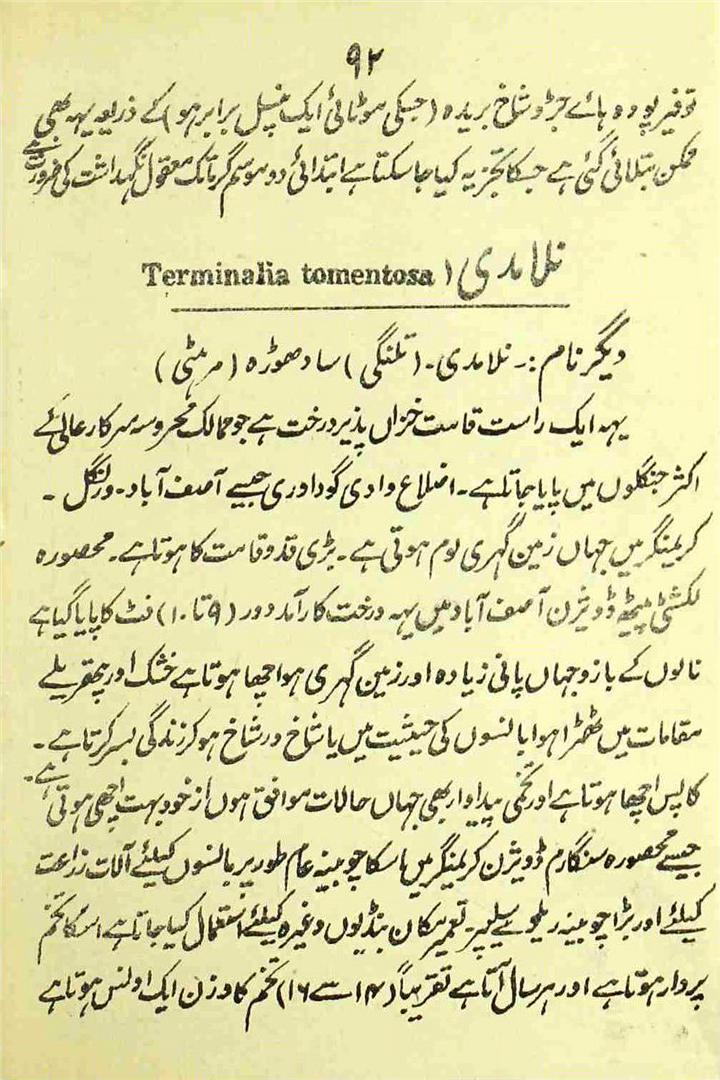 ۹۲
توفیر پودہ ہائے جڑ و شاخ بریدہ (جسکی موٹائی ایک پنسل برابر ہو) کے ذریعہ یہہ بھی
ممکن بتلائی گئی ہے جسکا تجزیہ کیا جاسکتا ہے ابتدائی دو موسم گرما تک معقول نگہداشت کی ضرورت ہے
نلامدی ( Terminalia tomentosa
دیگر نام :۔ نلامدی۔ (تلنگی) سادھوڑہ (مرہٹی)
یہہ ایک راست قامت خزاں پذیر درخت ہے جو ممالک محروسہ سرکار عالی کے
اکثر جنگلوں میں پایا جاتا ہے۔ اضلاع وادی گوداوری جیسے آصف آباد۔ ورنگل۔
کریمنگر میں جہاں زمین گہری لوم ہوتی ہے۔ بڑی قد و قامت کا ہوتا ہے۔ محصورہ
لکشٹی پیٹھ ڈویژن آصف آباد میں یہہ درخت کارآمد دور (۹ تا ۱۰) فٹ کا پایا گیا ہے
نالوں کے بازو جہاں پانی زیادہ اور زمین گہری ہو اچھا ہوتا ہے خشک اور پتھریلے
مقامات میں ٹھٹرا ہوا بانسوں کی حیثیت میں یا شاخ در شاخ ہوکر زندگی بسر کرتا ہے۔
کاپس اچھا ہوتا ہے اور تخمی پیداوار بھی جہاں حالات موافق ہوں از خود بہت اچھی ہوتی ہے۔
جیسے محصورہ سنگارم ڈویژن کریمنگر میں اسکا چوبینہ عام طور پر بانسوں کیلئے آلات زراعت
کیلئے اور بڑا چوبینہ ریلوے سلیپر۔ تعمیر مکان بنڈیوں وغیرہ کیلئے استعمال کیا جاتا ہے اسکا تخم
پردار ہوتا ہے اور ہر سال آتا ہے تقریباً (۱۴ سے ۱۶) تخم کا وزن ایک اونس ہوتا ہے